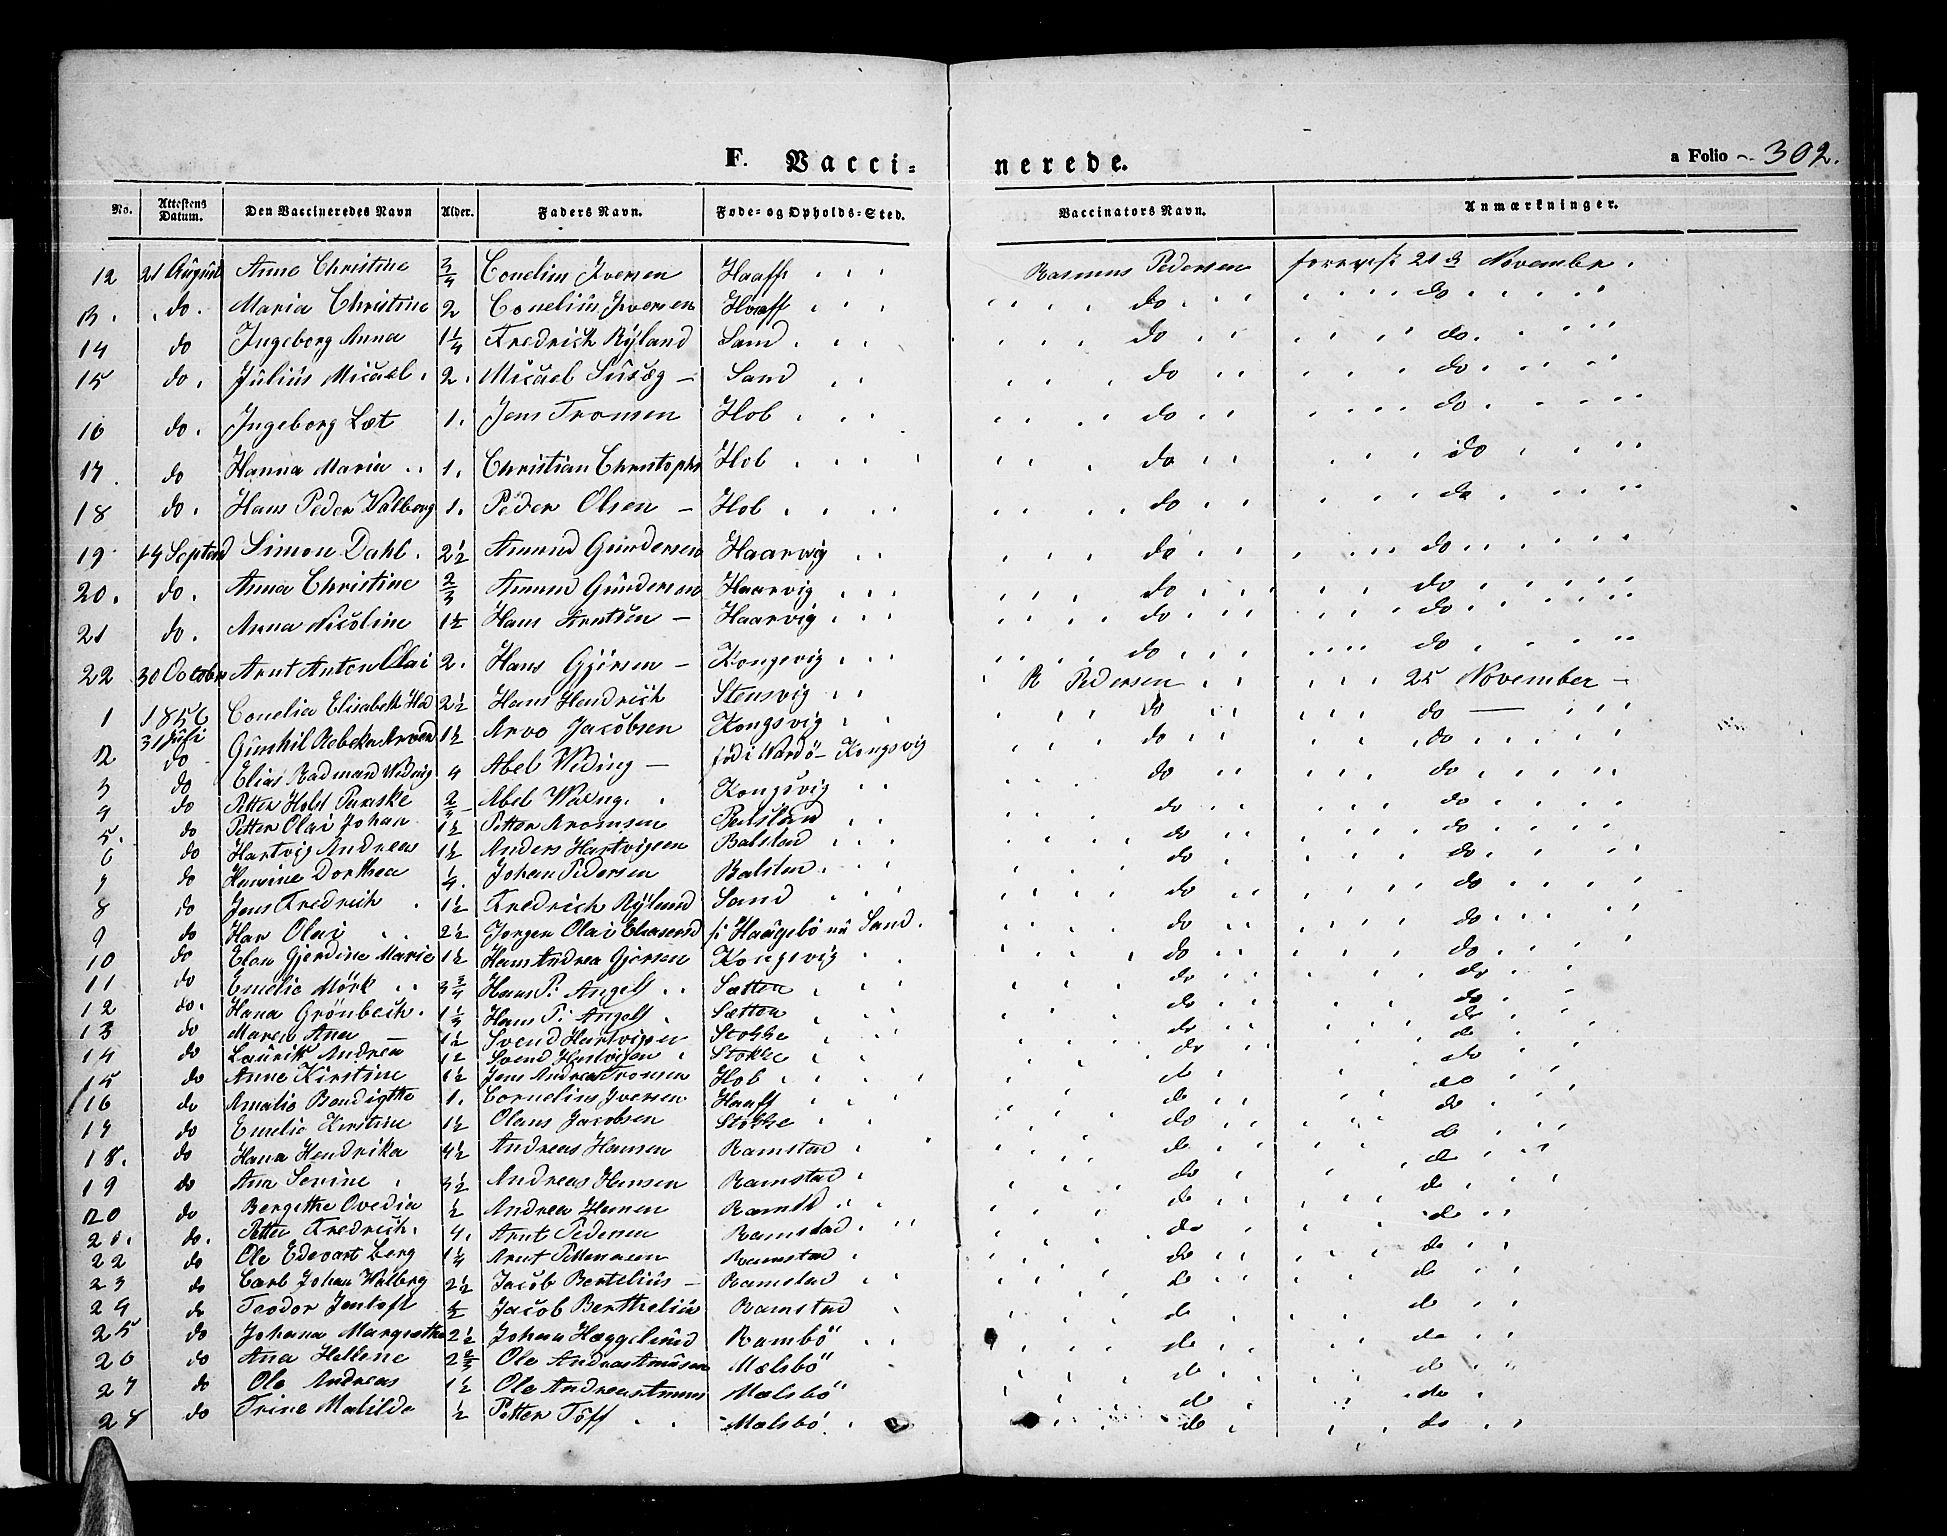 F. Vacci- nerede. a Folio 302.
No. Attestens Datum. Den Vaccineredes Navn Alder. Faders Navn. Føde- og Opholds-Sted. Vaccinators Navn. Anmærkninger.
12 21 August Anne Christine 3/4 Conelius Iversen Haaff Rasmus Pedersen 21 November.
13. do. Maria Christine 2 Conelius Iversen Haaff do do
14 do Ingeborg Anna 1 1/4 Fredrich Ryland Sand do do.
15 do. Julius Micael 2. Micael Sand do do
16 do. Ingeborg Læt 1. Jens Tromsen Hob do do
17 do Hanna Maria 1. Christian Christophs Hob do do
18 do. Hans Peder Valberg 1. Peder Olsen Hob do do
19 14 Septem Simon Dahl 2 1/2 Amund Gundersen Haarvig do do
20. do. Anna Christine 2/3 Amund Gundersen Haarvig do do
21 do. Anna Nicoline 1 1/2 Hans Arntsen Haarvig do do
22 30 Octobr Arnt Anton Olai 2. Hans Gjersen Kongsvig do do
1 1856 Conelia Elisabeth 2 1/2 Hans Hendrich Stensvig R Pedersen 25 November
2 31 Juli Gunhil Rebeka 1 1/2 Arvo Jacobsen Kongsvig do do
3 do Elias Radmand Weding 4 Abel Weding fød i Vardö Kongsvig do do
4 do Petter Holst 2/3 Abel Kongsvig do do
5. do Petter Olai Johan 1 1/2 Petter Aromsen Balstad do do
6 do Hartvig Andreas 1 1/2 Anders Hartvigsen Balstad do do
7 do Hanine Dorthea 1/4. Johan Pedersen Balstad. do do
8 do Jens Fredrich 1 1/2 Fredrich Rylund Sand do do
9 do Olai 2 1/2 Jørgen Olai nu Sand. do do
10 do Elen Gjerdine Marie 1 1/2 Hans Andrea Gjersen Kongsvig do do
11 do Emelie Mörk 3 3/4 Hans P. Angell Sætten do do
12 do. Hana Grönbech. 1 1/3 Hans P. Angell Sætten do do
13 do Maren Ana 1 1/2 Svend Hartvigsen Stokke do do
14 do Laurits Andrea 1 1/2 Svend Hartvigsen Stokke do do
15 do Anne Kirstine 1 1/2 Jens Andreas Tromsen Hob do do
16 do Amalie Bendigthe 1. Cornelius Iversen Haaff do do
17 do Emelie Kirstine 1 1/2 Olaus Jacobsen Stokke do do
18. do Hana Hendrika 4 1/2 Andreas Hansen Ramstad do do
19 do Ana Serine 3 1/2 Andreas Hansen Ramstad do do
20 do Bergithe Ovedia 1/2 Andrea Hansen do do
21. do. Petter Fredrich. 4. Arnt Pedersen Ramstad do do
22 do Ole Edevart Berg 1 1/4 Arnt Ramstad do do
23 do Carl Johan Valberg 2 1/2 Jacob Bertelius Ramstad do do
24 do Teodor Jentoft 1/2 Jacob Berthelius Ramstad do do
25 do Johana Margrethe 2 1/2 Johan Hæggelund Rambö do do
26 do Ana Hellene 2 2/3 Ole Andreas Amundsen Mælsbö do do
27 do Ole Andreas 1 1/2 Ole Andreas Mælsbö do do
28 do Trine Matilde 1/2 Petter Töff Mælsbö do do